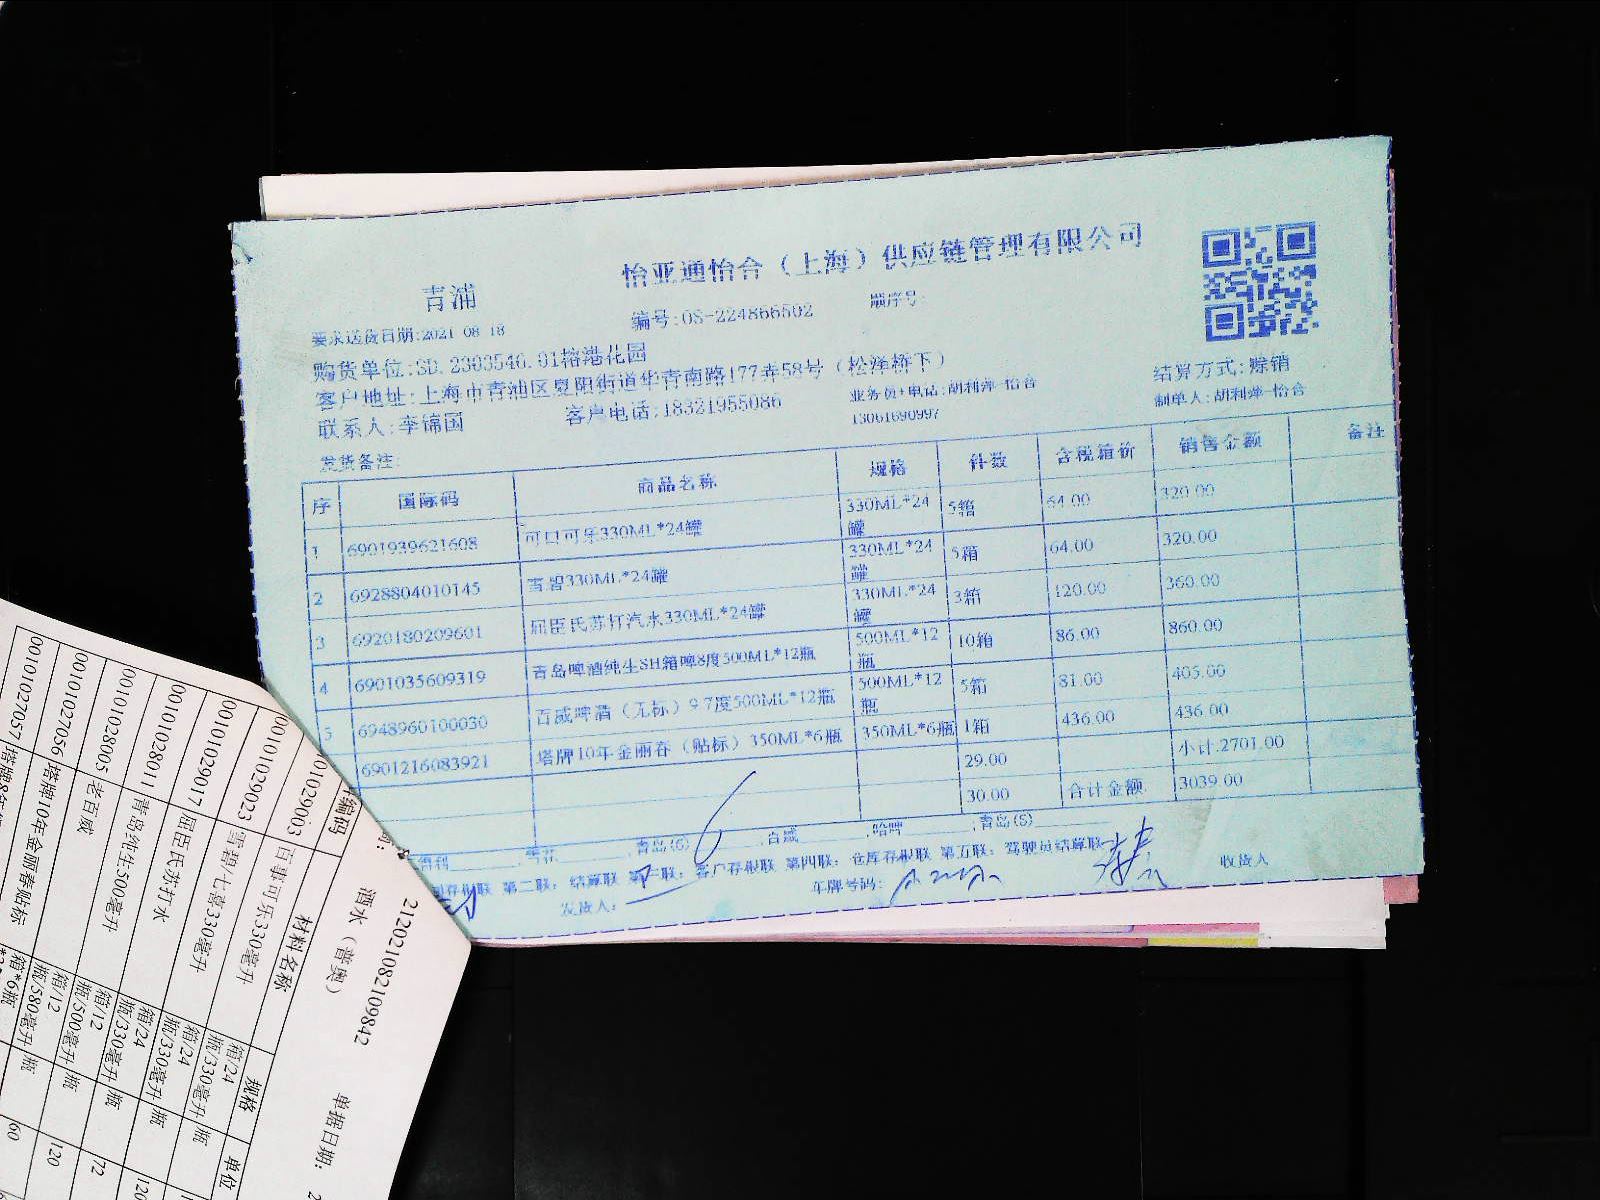 怡亚通怡合（上海）供应链管理有限公司
青浦
编号:OS-224866502
顺序号:
要求送货日期:2021-08-18
购货单位:SD.2303546.01榕港花园
结算方式:赊销
客户地址:上海市青浦区夏阳街道华青南路177弄58号（松泽桥下）
业务员+电话:胡利萍-怡合
13061690997
制单人:胡利萍-怡合
联系人:李锦国
客户电话:18321955086
发货备注:
序 国际码 商品名称 规格 件数 含税箱价 销售金额 备注
1 6901939621608 可口可乐330ML*24罐 330ML*24罐 5箱 64.00 320.00
2 6928804010145 雪碧330ML*24罐 330ML*24罐 5箱 64.00 320.00
3 6920180209601 屈臣氏苏打汽水330ML*24罐 330ML*24罐 3箱 120.00 360.00
4 6901035609319 青岛啤酒纯生SH箱啤8度500ML*12瓶 500ML*12瓶 10箱 86.00 860.00
5 6948960100030 百威啤酒（无标）9.7度500ML*12瓶 500ML*12瓶 5箱 81.00 405.00
6901216083921 塔牌10年金丽春（贴标）350ML*6瓶 350ML*6瓶 1箱 436.00 436.00
29.00 小计:2701.00
30.00 合计金额: 3039.00
青岛(G) 百威 哈啤 青岛(S)
存根联 第二联: 结算联 第三联: 客户存根联 第四联: 仓库存根联 第五联: 驾驶员结算联
发货人:
车牌号码:
收货人
2120210821098​42
单据日期: 2
酒水（普奥）
编码 材料名称 规格 单位
0101029003 百事可乐330毫升 箱/24瓶/330毫升 瓶
00101029023 雪碧/七喜330毫升 箱/24瓶/330毫升 瓶
00101029017 屈臣氏苏打水 箱/24瓶/330毫升 瓶 120
00101028011 青岛纯生500毫升 箱/12瓶/500毫升 瓶 72
00101028005 老百威 箱/12瓶/580毫升 瓶 120
00101027056 塔牌10年金丽春贴标 箱*6瓶 瓶 60
00101027057